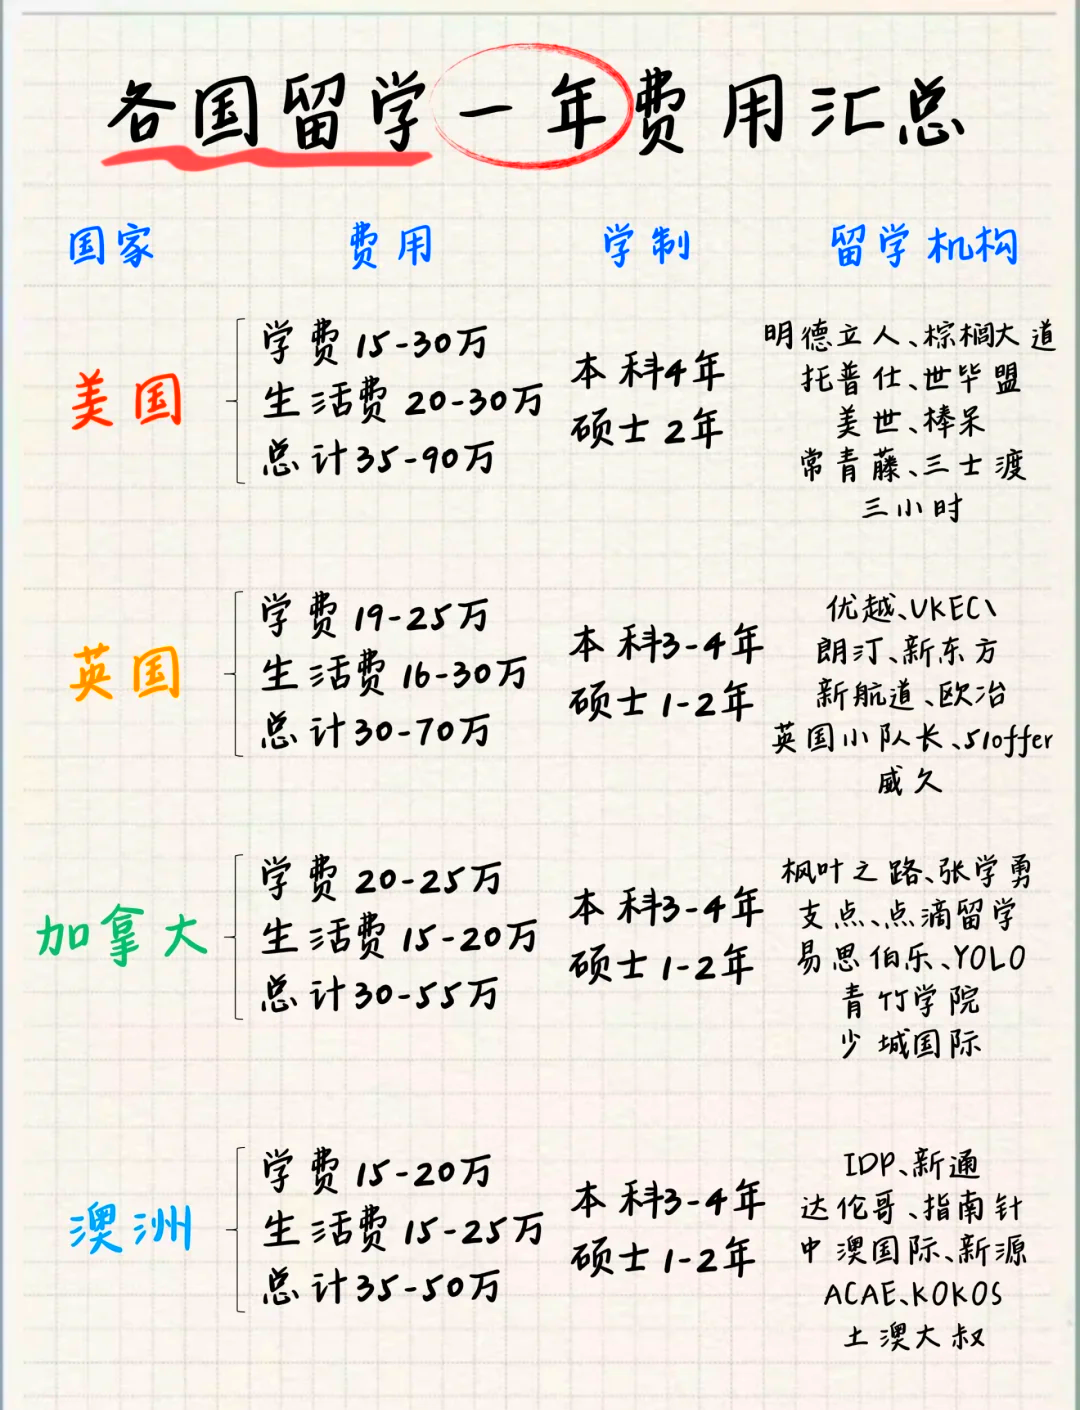 各国留学一年费用汇总
国家 费用 学制 留学机构
美国
学费15-30万
生活费20-30万
总计35-90万
本科4年
硕士2年
明德立人、棕榈大道
托普仕、世毕盟
美世、棒呆
常青藤、三士渡
三小时
英国
学费19-25万
生活费16-30万
总计30-70万
本科3-4年
硕士1-2年
优越、UKEC\
朗汀、新东方
新航道、欧冶
英国小队长、51offer
威久
加拿大
学费20-25万
生活费15-20万
总计30-55万
本科3-4年
硕士1-2年
枫叶之路、张学勇
支点、点滴留学
易思伯乐、YOLO
青竹学院
少城国际
澳洲
学费15-20万
生活费15-25万
总计35-50万
本科3-4年
硕士1-2年
IDP、新通
达伦哥、指南针
中澳国际、新源
ACAE、KOKOS
土澳大叔